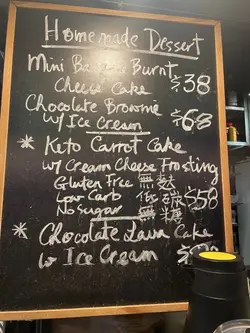 Homemade Dessert
Mini Basque Burnt
Cheese Cake $38
Chocolate Brownie
w/ Ice Cream $68
* Keto Carrot Cake
w/ Cream Cheese Frosting
Gluten Free 無麩
Low Carb 低碳 $58
No Sugar 無糖
* Chocolate Lava Cake
w Ice Cream